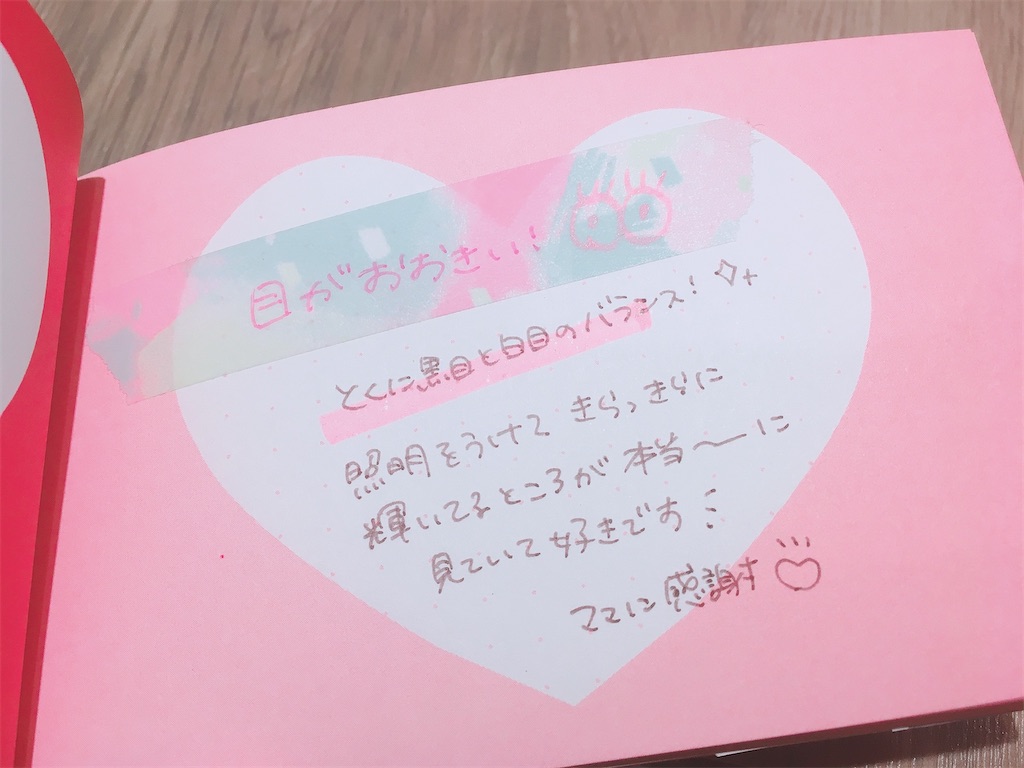 目がおおきい!
とくに黒目と白目のバランス!
照明をうけて きらっきらに
輝いてるところが本当〜に
見ていて好きです
ママに感謝